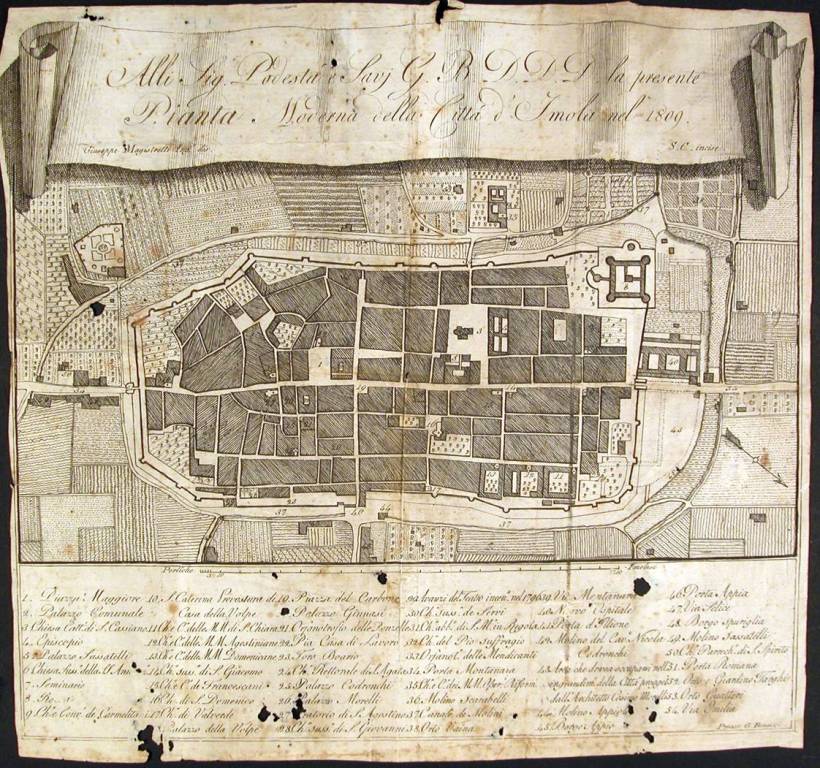 Alli Sig. Podestà e Savj G. B. D. D. D. la presente
Pianta Moderna della Città d'Imola nel 1809.
Giuseppe Magistretti
S. C. incise
Pertiche
1. Piazza Maggiore
2. Palazzo Comunale
3. Chiesa Catt. di S. Cassiano
4. Episcopio
5. Palazzo Sassatelli
6. Chiesa Suss. della
7. Seminario
8.
9. Ch. e Conv. de Carmelit.
10. S. Caterina Provostura di
Casa della Volpe
11. Ch. e C. delle M.M. di S. Chiara
12. Ch. e C. delle M.M. Agostiniane
13. Ch. e C. delle M.M. Domenicane
14. Ch. suss. di S. Giacomo
15. Ch. e C. de Francescani
16. Ch. di S. Domenico
17. Ch. di Valverde
Palazzo della Volpe
19. Piazza del Carbone
Palazzo Ginnasi
21. Orfanotrofio delle Donzelle
22. Pia Casa di Lavoro
23. Foro Boario
24. Ch. Parrocale di S. Agata
25. Palazzo Codronchi
26. Palazzo Morelli
27. Oratorio di S. Agostino
28. Ch. suss. di S. Giovanni
29. Avanzi del Teatro incen. nel 1796
30. Ch. Suss. de Servi
31. Ch. ab. di S. M. in Regola
32. Ch. del Pio Suffragio
33. Orfanot. delle Mendicanti
34. Porta Montanara
35. Ch. e C. dei M.M. Oss. Riform.
36. Molino Scarabelli
37. Canale de Molini
38. Orto Vaina
39. Via Montanara
40. Novo Ospitale
41. Porta
42. Molino del Cav. Nicola
Codronchi
43. Area che dovea occuparsi nell'
ingrandim. della Città
dall' Architetto Cosimo Morelli
44. Molino Appiglio
45. Borgo Appio
46. Porta Appia
47. Via Selice
48. Borgo Spuviglia
49. Molino Sassatelli
50. Ch. Paroch. di S. Spirito
51. Porta Romana
52. Orto e Giardino
53. Orto
54. Via Emilia